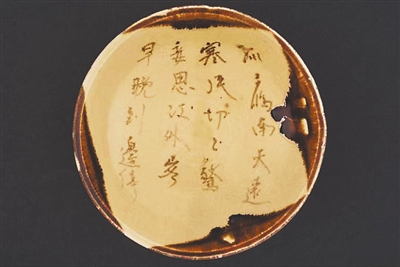 孤鴈南天遠
寒風切々驚
妾思江外客
早晚到邊停